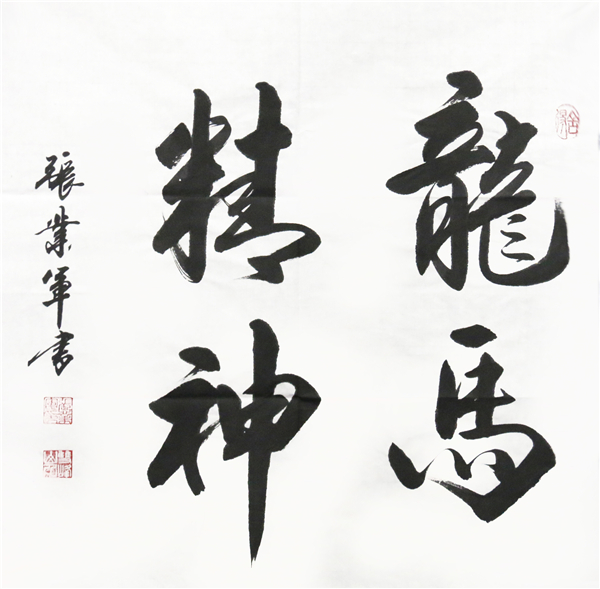 龍馬
精神
張業軍書